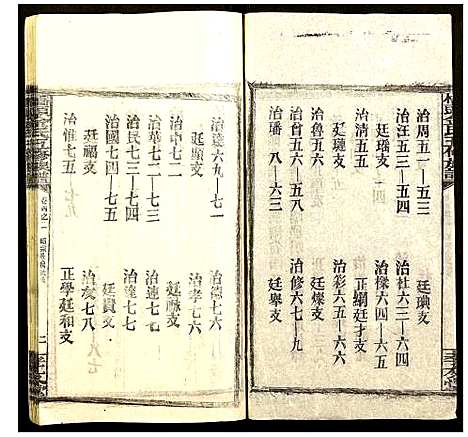 治周五一—五三
廷瑞支
治汪五三—五四
治清五五
廷璉支
治魯五六
治璠五八—六三
廷璵支
治社六三—六四
治樑六四
正綱廷才支
治彩六五—六六
廷燦支
治修六六—六七
廷擧支
治蓮六九—七一
廷顯支
治中七二
治華七二—七三
治民七三—七四
治國七四—七五
廷福支
治惟七五—七九
治德七六
治孝七六
廷咏支
治連七六
治達七七
廷貴支
治亥七八
正學廷和支
孝友堂